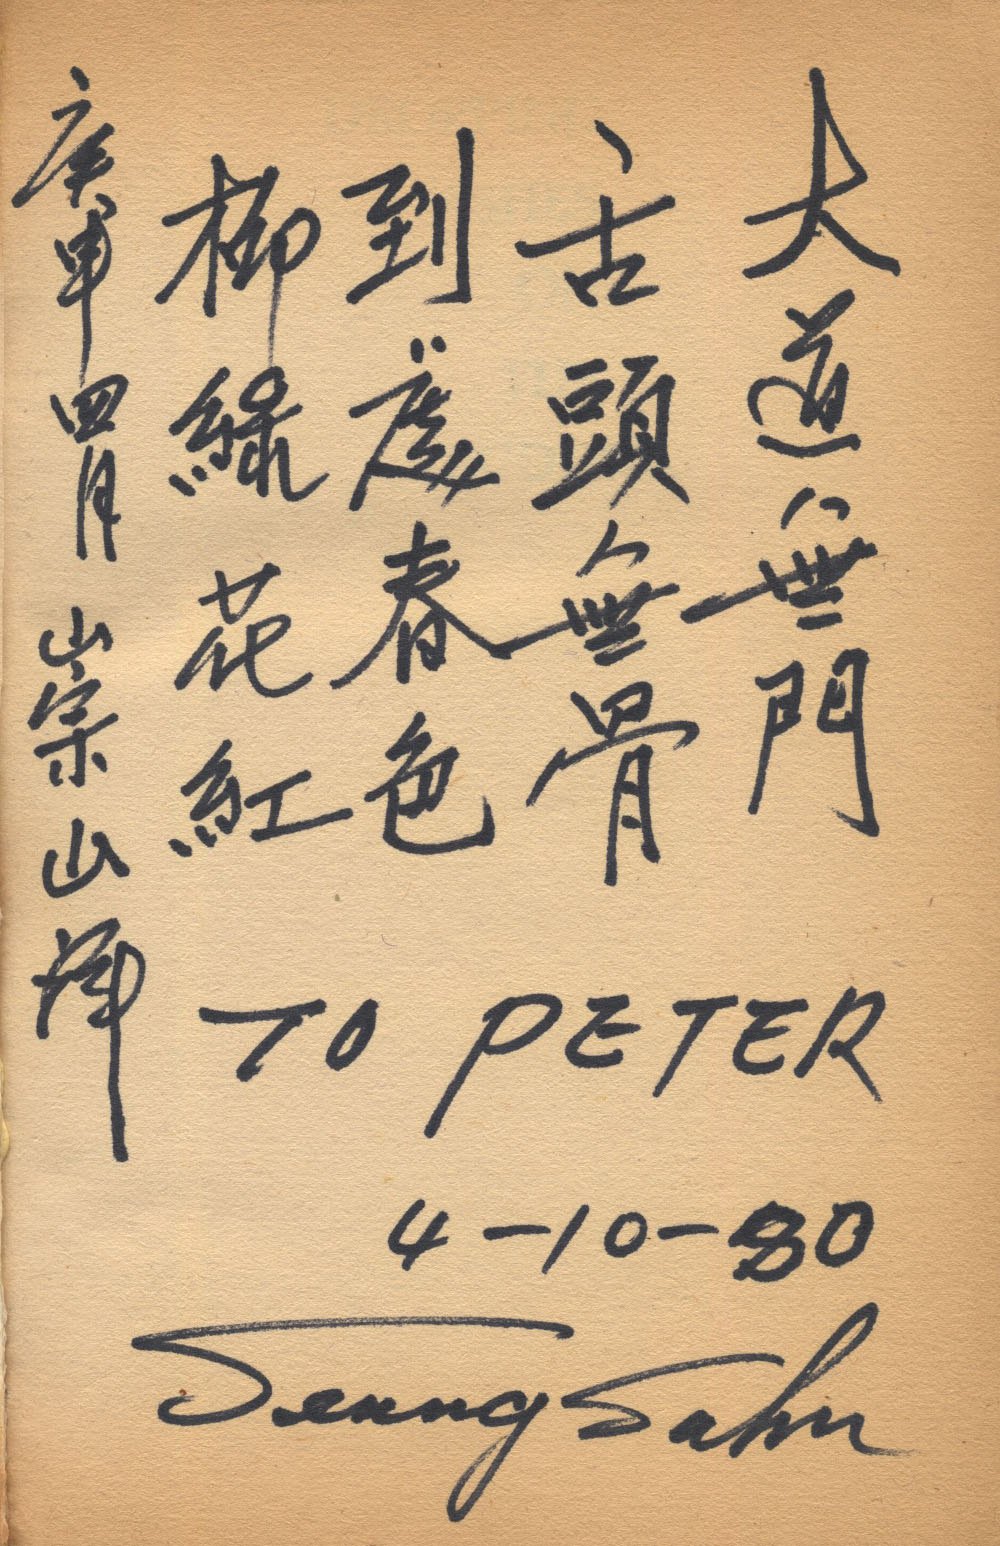 大道無門
舌頭無骨
到處春色
柳綠花紅
庚申四月 崇山禪
TO PETER
4-10-80
Seung Sahn